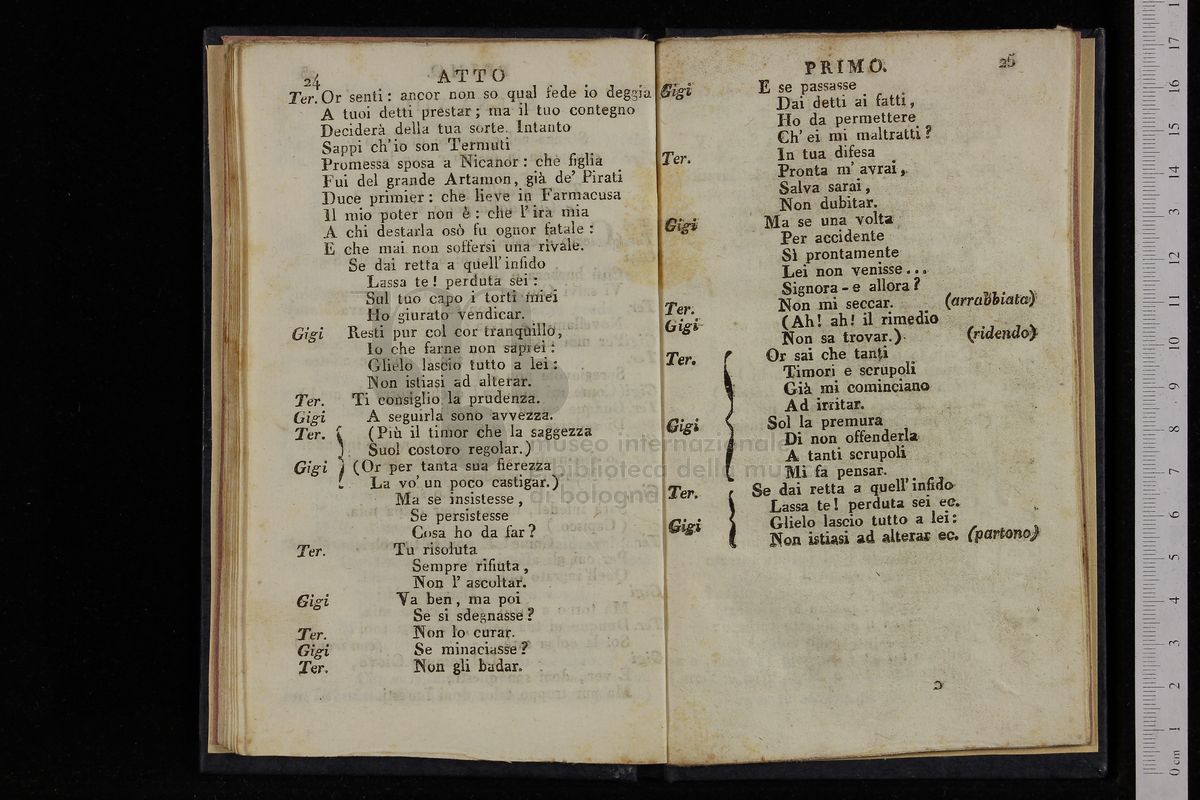 24
ATTO
Ter. Or senti: ancor non so qual fede io deggia
A tuoi detti prestar; ma il tuo contegno
Deciderà della tua sorte. Intanto
Sappi ch'io son Termuti
Promessa sposa a Nicanor: che figlia
Fui del grande Artamon, già de' Pirati
Duce primier: che lieve in Farmacusa
Il mio poter non è: che l'ira mia
A chi destarla osò fu ognor fatale:
E che mai non soffersi una rivale.
Se dai retta a quell'infido
Lassa te! perduta sei:
Sul tuo capo i torti miei
Ho giurato vendicar.
Gigi Resti pur col cor tranquillo,
Io che farne non saprei:
Glielo lascio tutto a lei:
Non istiasi ad alterar.
Ter. Ti consiglio la prudenza.
Gigi A seguirla sono avvezza.
Ter. (Più il timor che la saggezza
Suol costoro regolar.)
Gigi (Or per tanta sua fierezza
La vo' un poco castigar.)
Ma se insistesse,
Se persistesse
Cosa ho da far?
Ter. Tu risoluta
Sempre rifiuta,
Non l'ascoltar.
Gigi Va ben, ma poi
Se si sdegnasse?
Ter. Non lo curar.
Gigi Se minaciasse?
Ter. Non gli badar.
PRIMO.
25
Gigi E se passasse
Dai detti ai fatti,
Ho da permettere
Ch'ei mi maltratti?
Ter. In tua difesa
Pronta m'avrai,
Salva sarai,
Non dubitar.
Gigi Ma se una volta
Per accidente
Sì prontamente
Lei non venisse...
Signora - e allora?
Ter. Non mi seccar. (arrabbiata)
Gigi (Ah! ah! il rimedio
Non sa trovar.) (ridendo)
Ter. Or sai che tanti
Timori e scrupoli
Già mi cominciano
Ad irritar.
Gigi Sol la premura
Di non offenderla
A tanti scrupoli
Mi fa pensar.
Ter. Se dai retta a quell'infido
Lassa te! perduta sei ec.
Gigi Glielo lascio tutto a lei:
Non istiasi ad alterar ec. (partono)
museo internazionale
e biblioteca della mu
di bologna
0 cm 1 2 3 4 5 6 7 8 9 10 11 12 13 14 15 16 17